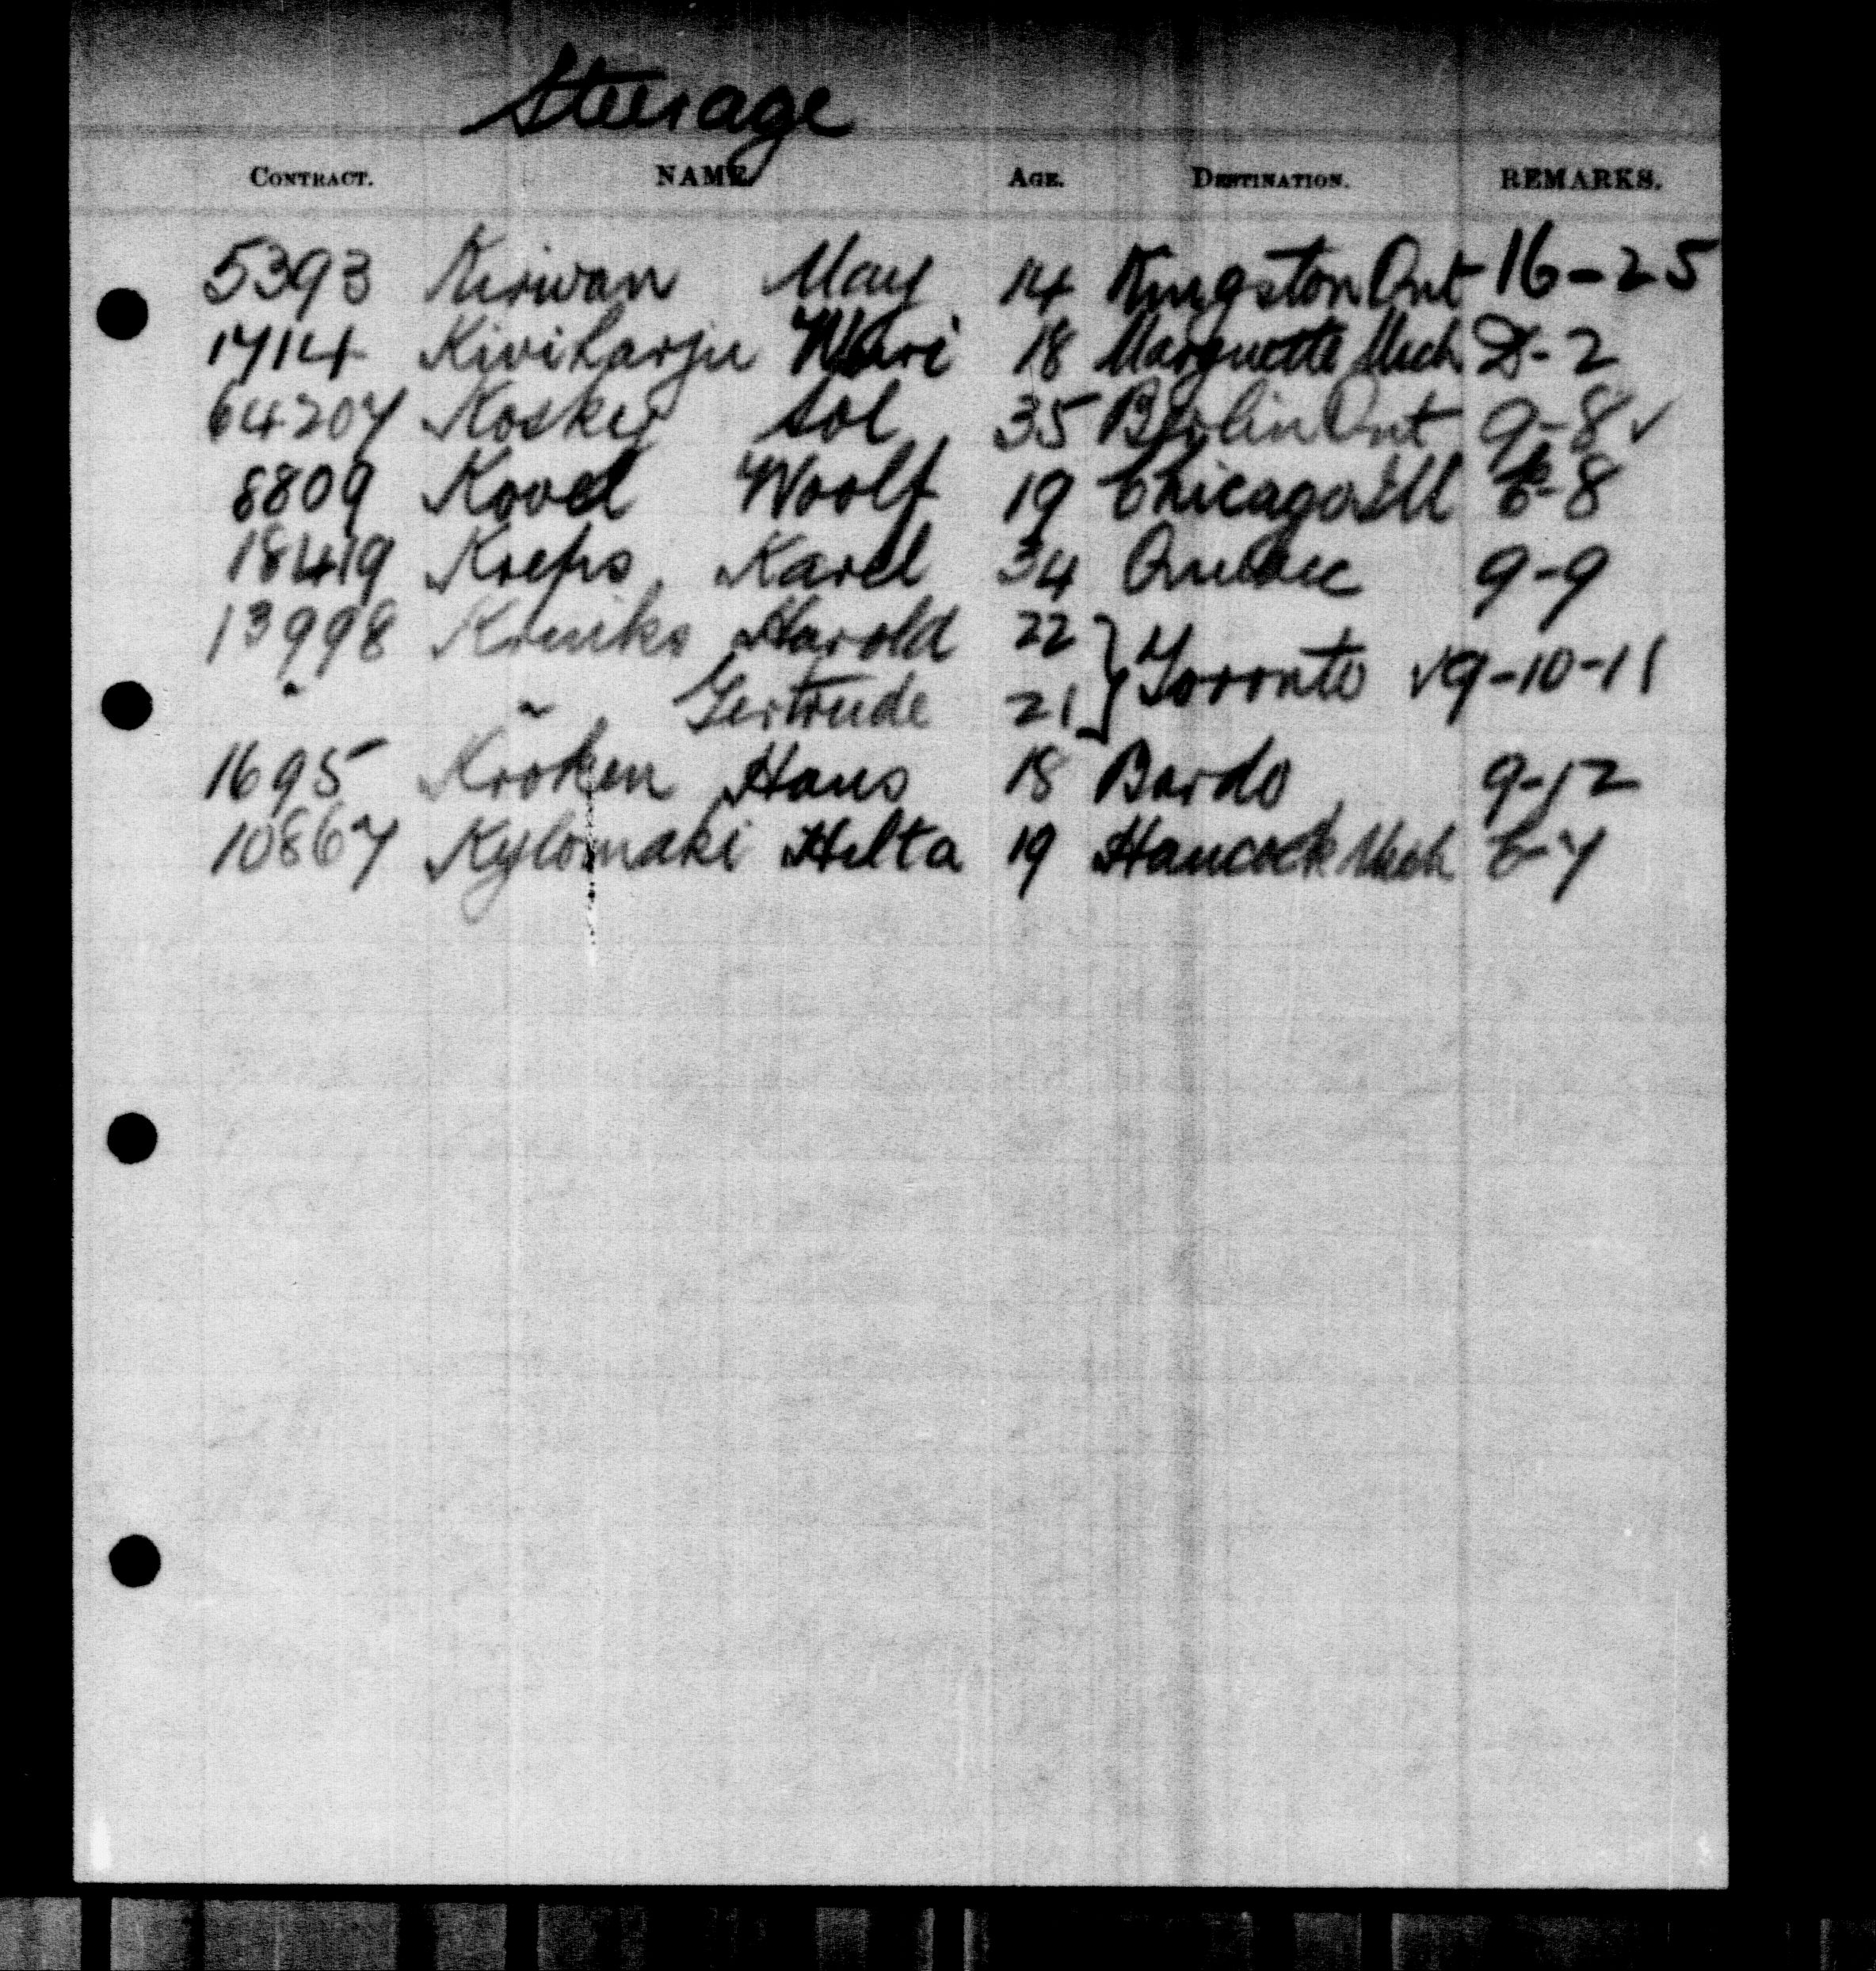 Steerage
CONTRACT. NAME AGE. DESTINATION. REMARKS.
5393 Kirwan May 14 Kingston Ont 16-25
17114 Kiviharju 18 Marquette Mich -2
64207 Koskey Sol 35 Berlin Ont 9-8 ✓
8809 Kovel Woolf 19 Chicago Ill 6-8
18419 Kreps, Karel 34 Quebec 9-9
13998 Harold 22 } Toronto ✓9-10-11
" " Gertrude 21
1695 Kroken Hans 18 Bardo 9-12
10867 Kylomaki Hilta 19 Hancock Mich 6-7